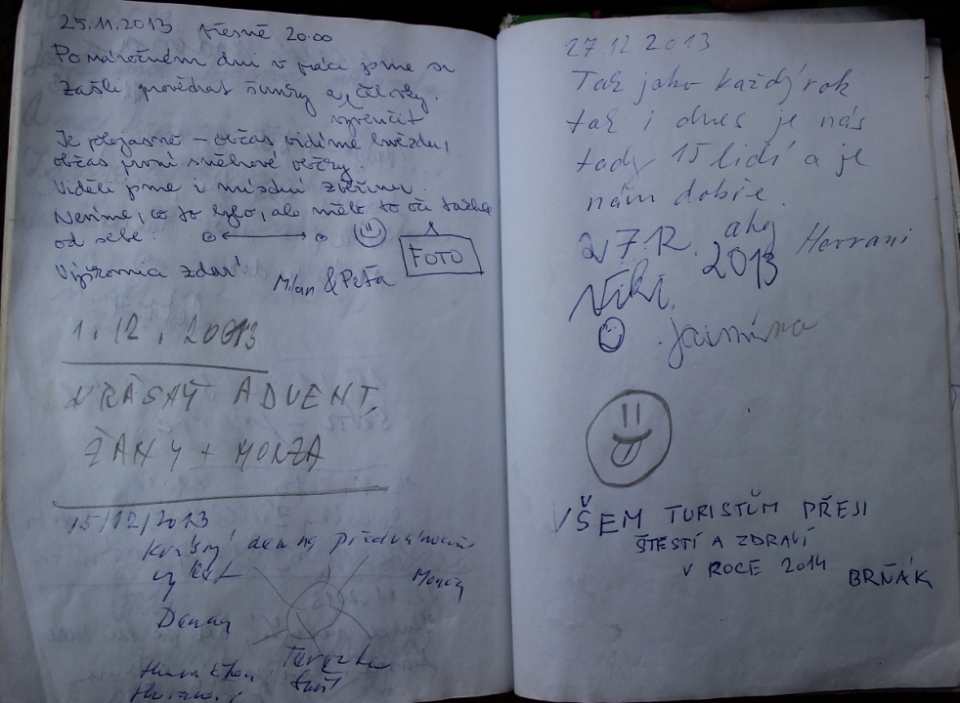 25.11.2013 přesně 20:00
Po náročném dni v práci jsme se
zašli provědrat šunky a čelovky.
vyvenčit
Je polojasno – občas vidíme hvězdu,
občas první sněhové vločky.
Viděli jsme i místní zvěřinu.
Nevíme, co to bylo, ale mělo to oči takhle
od sebe.
FOTO
Výškovnica zdar!
Milan & Peťa
1. 12. 2013
KRÁSNÝ ADVENT
ŽANY + HONZA
15/12/2013
Krásný den na předvánoční
výlet
Moncy
Danny
Terezka
27.12.2013
Tak jako každý rok
tak i dnes je nás
tady 15 lidí a je
nám dobře.
27.12. ahoj
2013
Niki
Jasmína
VŠEM TURISTŮM PŘEJI
ŠTĚSTÍ A ZDRAVÍ
V ROCE 2014
BRŇÁK